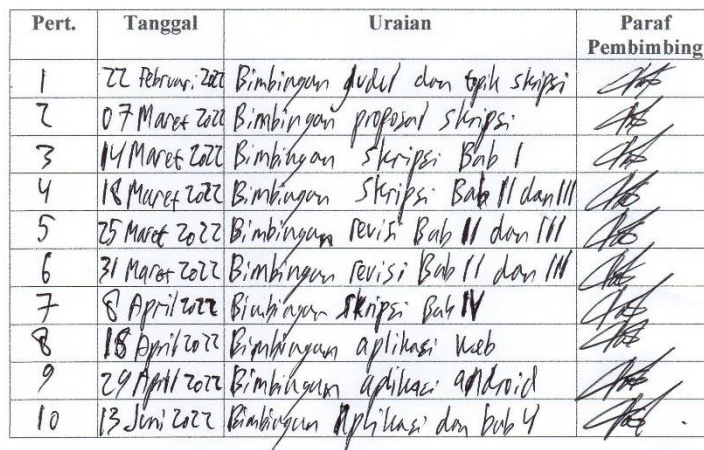 Pert. Tanggal Uraian Paraf Pembimbing
1 22 Februari 2022 Bimbingan judul dan topik skripsi
2 07 Maret 2022 Bimbingan proposal skripsi
3 14 Maret 2022 Bimbingan skripsi Bab I
4 18 Maret 2022 Bimbingan Skripsi Bab II dan III
5 25 Maret 2022 Bimbingan revisi Bab II dan III
6 31 Maret 2022 Bimbingan revisi Bab II dan III
7 8 April 2022 Bimbingan Skripsi Bab IV
8 18 April 2022 Bimbingan aplikasi web
9 29 April 2022 Bimbingan aplikasi android
10 13 Juni 2022 Bimbingan Aplikasi dan bab 4